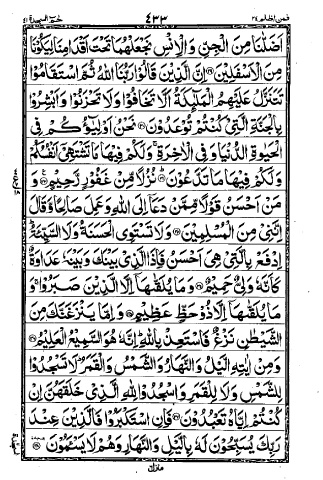 فمن اظلم ٢٤ ٤٣٣ حٰم السجدة ٤١
اَضَلّٰنَا مِنَ الْجِنِّ وَالْاِنْسِ نَجْعَلْهُمَا تَحْتَ اَقْدَامِنَا لِيَكُوْنَا
مِنَ الْاَسْفَلِيْنَ۝ اِنَّ الَّذِيْنَ قَالُوْا رَبُّنَا اللّٰهُ ثُمَّ اسْتَقَامُوْا
تَتَنَزَّلُ عَلَيْهِمُ الْمَلٰٓئِكَةُ اَلَّا تَخَافُوْا وَلَا تَحْزَنُوْا وَاَبْشِرُوْا
بِالْجَنَّةِ الَّتِيْ كُنْتُمْ تُوْعَدُوْنَ۝ نَحْنُ اَوْلِيٰٓؤُكُمْ فِي
الْحَيٰوةِ الدُّنْيَا وَفِي الْاٰخِرَةِ ۚ وَلَكُمْ فِيْهَا مَا تَشْتَهِيْٓ اَنْفُسُكُمْ
وَلَكُمْ فِيْهَا مَا تَدَّعُوْنَ۝ نُزُلًا مِّنْ غَفُوْرٍ رَّحِيْمٍ۝ وَ
مَنْ اَحْسَنُ قَوْلًا مِّمَّنْ دَعَآ اِلَى اللّٰهِ وَعَمِلَ صَالِحًا وَّقَالَ
اِنَّنِيْ مِنَ الْمُسْلِمِيْنَ۝ وَلَا تَسْتَوِي الْحَسَنَةُ وَلَا السَّيِّئَةُ ۭ
اِدْفَعْ بِالَّتِيْ هِيَ اَحْسَنُ فَاِذَا الَّذِيْ بَيْنَكَ وَبَيْنَهٗ عَدَاوَةٌ
كَاَنَّهٗ وَلِيٌّ حَمِيْمٌ۝ وَمَا يُلَقّٰىهَآ اِلَّا الَّذِيْنَ صَبَرُوْا ۚ وَ
مَا يُلَقّٰىهَآ اِلَّا ذُوْ حَظٍّ عَظِيْمٍ۝ وَاِمَّا يَنْزَغَنَّكَ مِنَ
الشَّيْطٰنِ نَزْغٌ فَاسْتَعِذْ بِاللّٰهِ ۭ اِنَّهٗ هُوَ السَّمِيْعُ الْعَلِيْمُ۝
وَمِنْ اٰيٰتِهِ الَّيْلُ وَالنَّهَارُ وَالشَّمْسُ وَالْقَمَرُ ۭ لَا تَسْجُدُوْا
لِلشَّمْسِ وَلَا لِلْقَمَرِ وَاسْجُدُوْا لِلّٰهِ الَّذِيْ خَلَقَهُنَّ اِنْ
كُنْتُمْ اِيَّاهُ تَعْبُدُوْنَ۝ فَاِنِ اسْتَكْبَرُوْا فَالَّذِيْنَ عِنْدَ
رَبِّكَ يُسَبِّحُوْنَ لَهٗ بِالَّيْلِ وَالنَّهَارِ وَهُمْ لَا يَسْـَٔمُوْنَ۝
منزل